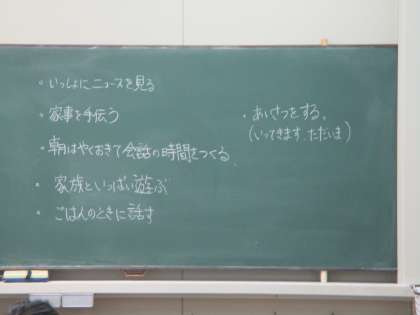 ・いっしょにニュースを見る
・家事を手伝う
・朝はやくおきて会話の時間をつくる。
・家族といっぱい遊ぶ
・ごはんのときに話す
・あいさつをする。
(いってきます、ただいま)